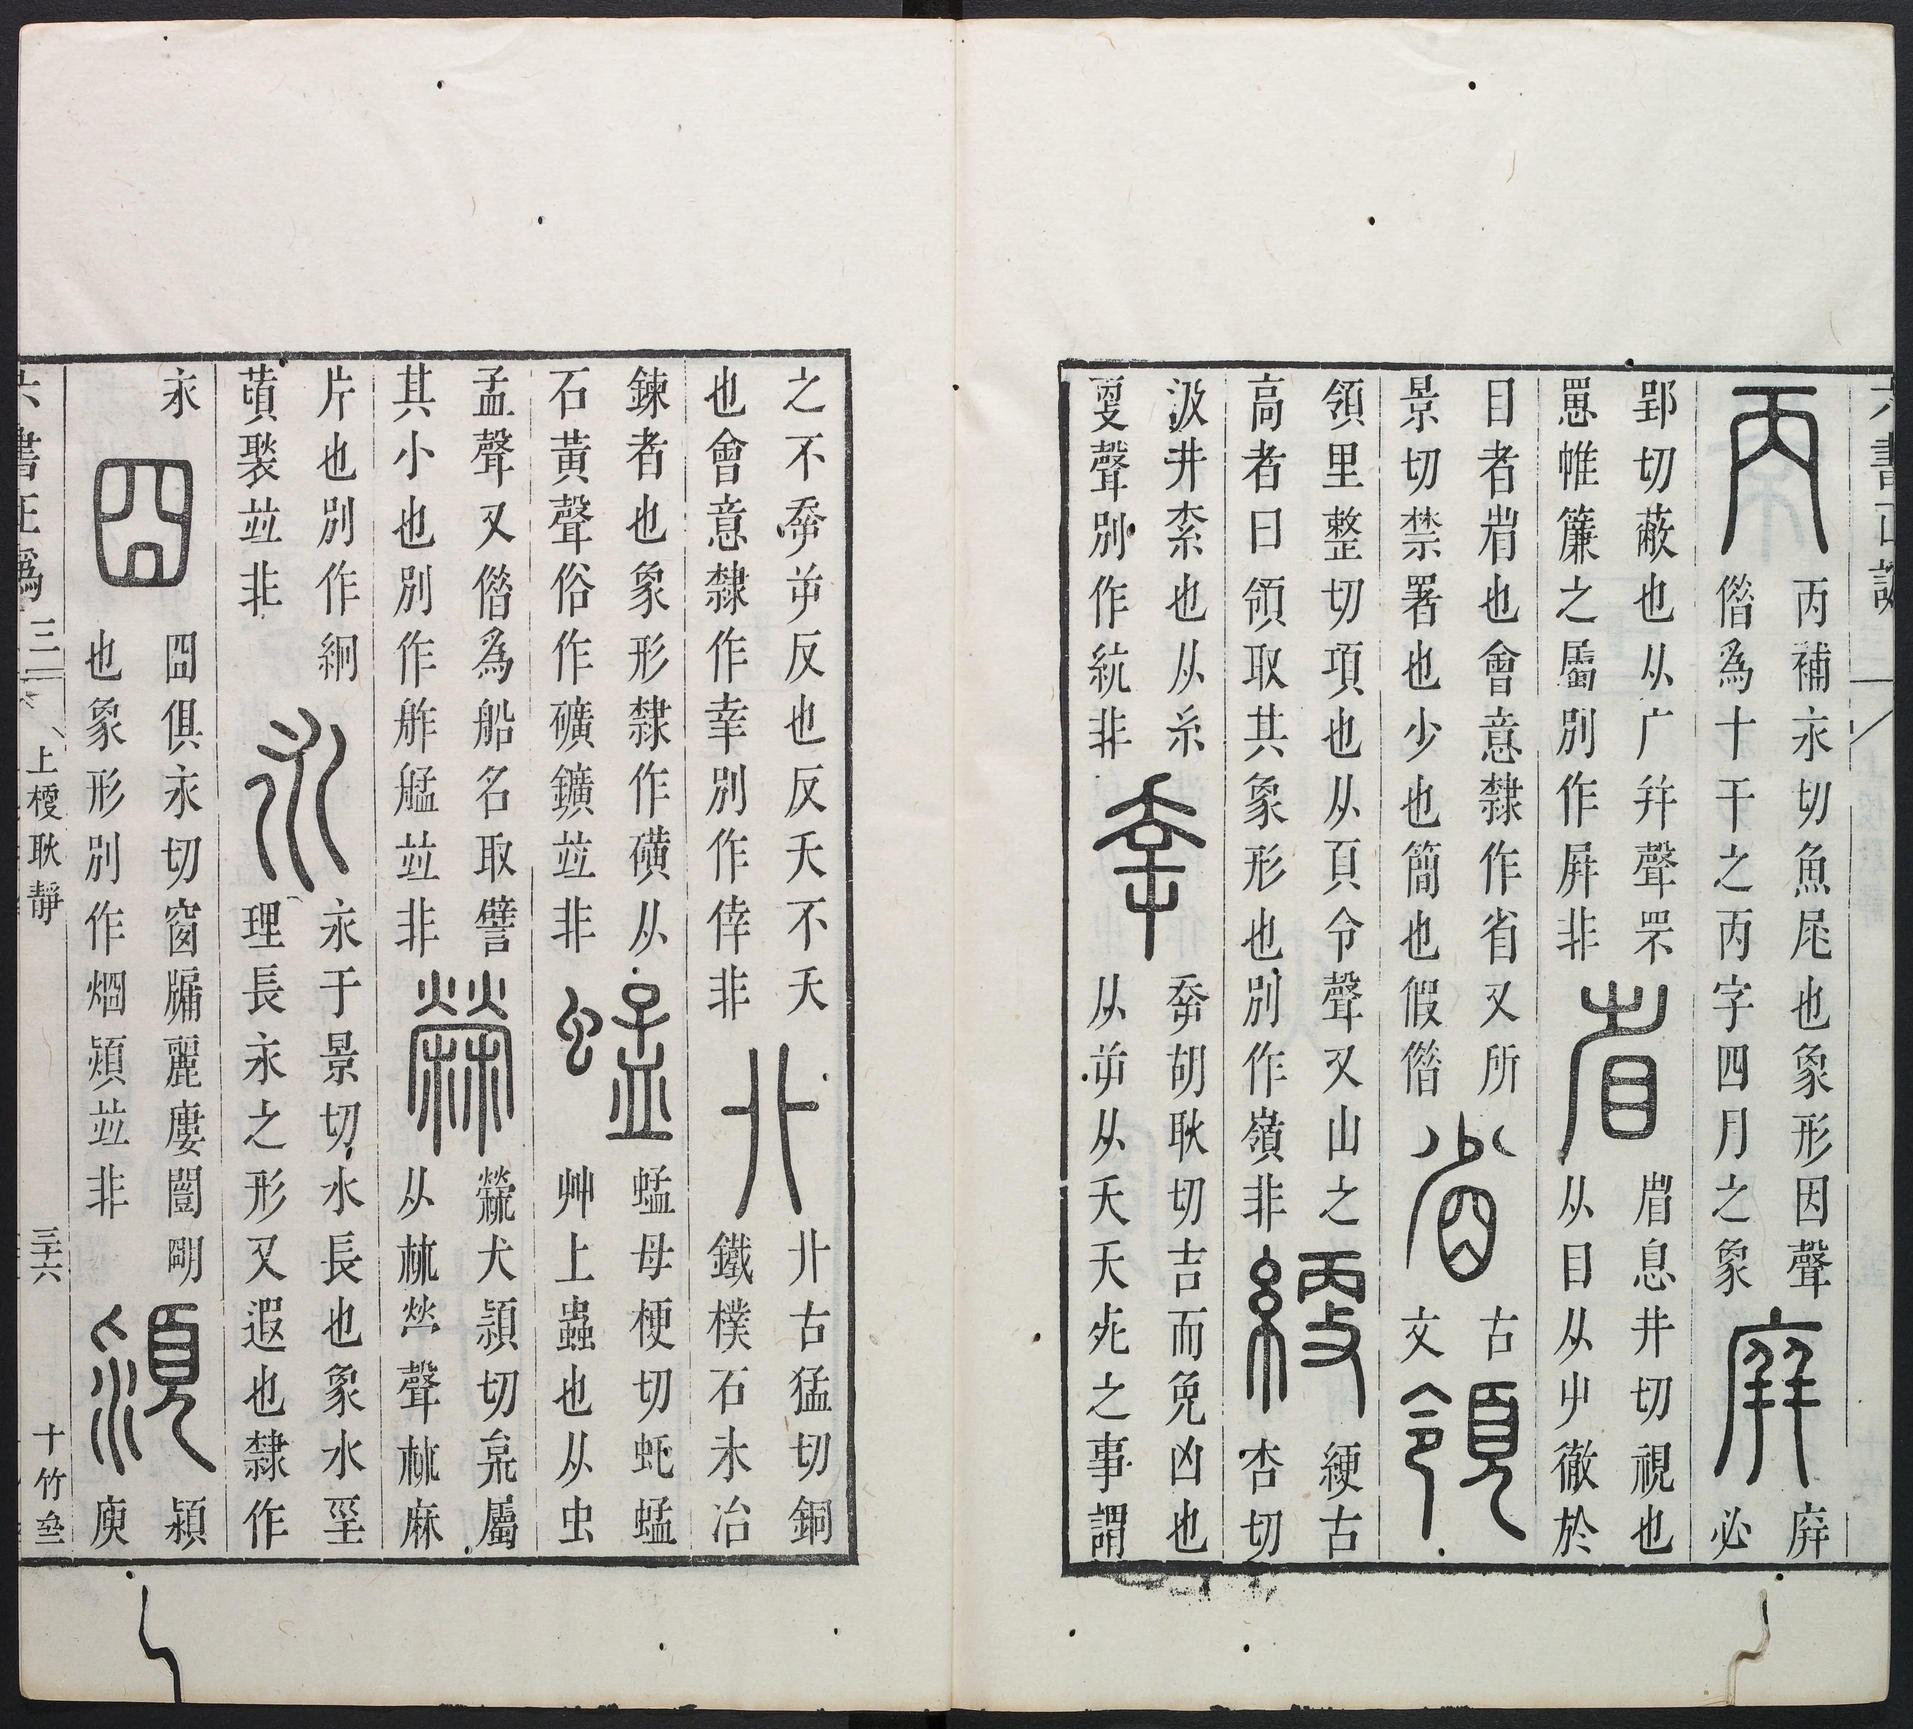 六書正譌
丙
丙補永切魚𡰪也象形因聲
借爲十干之丙字四月之象
庰
庰必
郢切蔽也从广并聲罘
罳帷簾之屬別作屏非
眚
眚息井切視也
从目从屮徹於
目者眚也會意隸作省又所
景切禁署也少也簡也假借
省
古
文
領
領里整切項也从頁令聲又山之
高者曰領取其象形也別作嶺非
綆
綆古
杏切
汲井索也从糸
㪅聲別作統非
㚔
㚔胡耿切吉而免凶也
从屰从夭夭死之事謂
之不㚔屰反也反夭不夭
也會意隸作幸別作倖非
卝
卝古猛切銅
鐵樸石未冶
鍊者也象形隸作磺从
石黃聲俗作礦鑛並非
蜢
蜢母梗切虴蜢
艸上蟲也从虫
孟聲又借爲船名取譬
其小也別作舴艋並非
檾
檾犬潁切枲屬
从𣏟熒聲𣏟麻
片也別作絅
褧並非
永
永于景切水長也象水巠
理長永之形又遐也隸作
永
囧
囧俱永切窗牖麗廔闓朙
也象形別作烱熲並非
潁
潁
庾
六書正譌 三 上梗耿靜 三十六 十竹齋